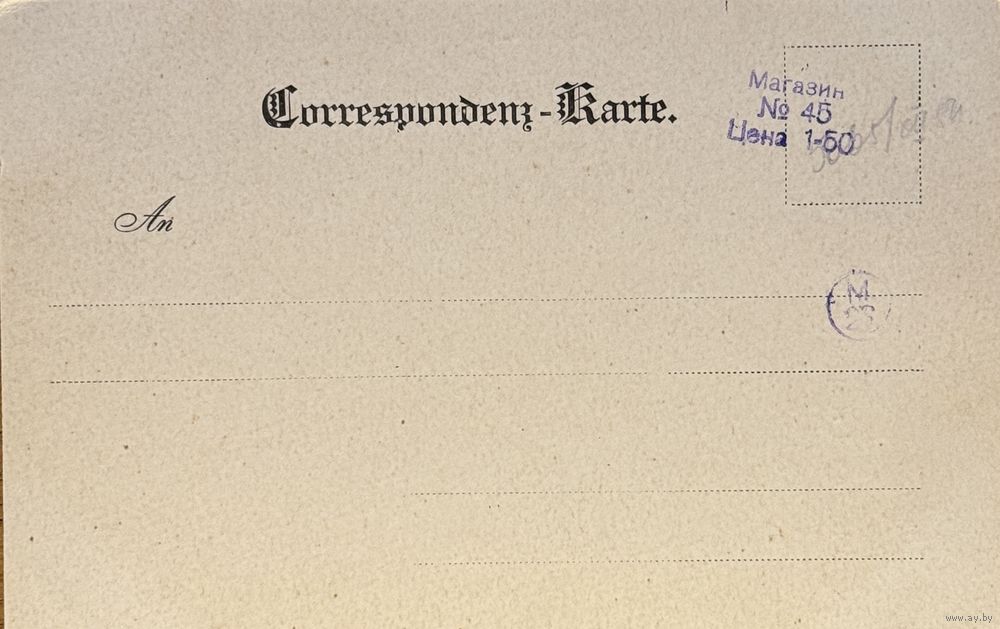 Correspondenz-Karte.
Магазин
№ 45
Цена 1-50
An
М
23
www.ay.by